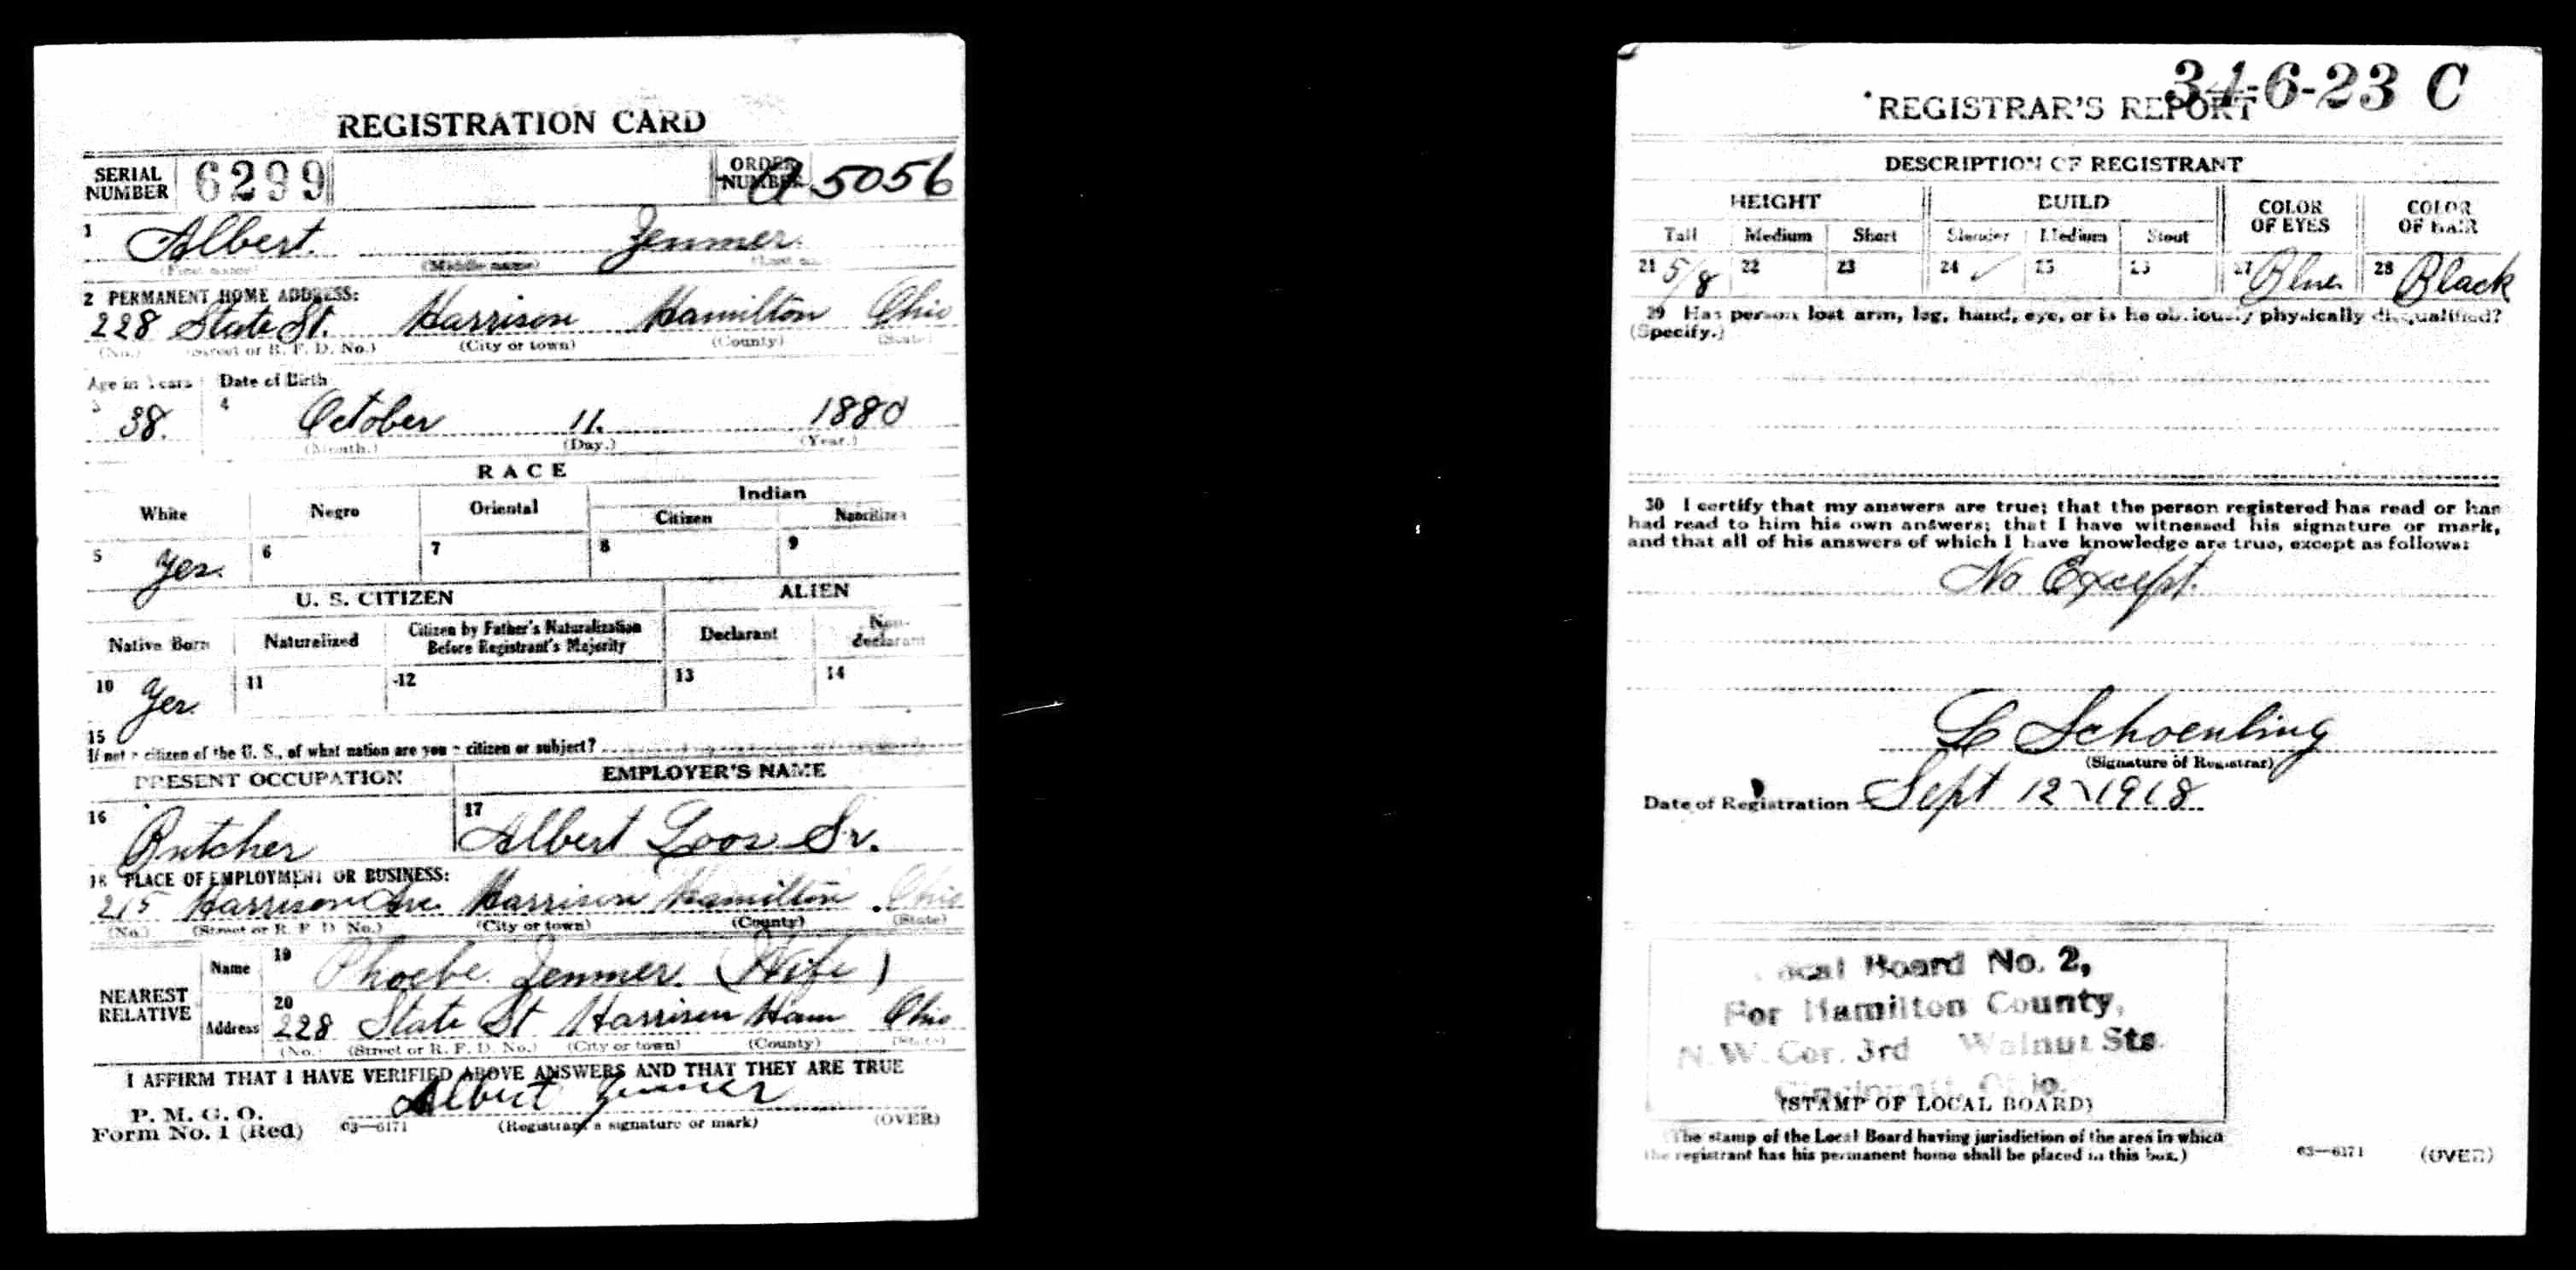 REGISTRATION CARD
SERIAL NUMBER 6299 ORDER NUMBER A 5056
1 Albert Zenmer
(First name) (Middle name) (Last name)
2 PERMANENT HOME ADDRESS:
228 State St. Harrison Hamilton Ohio
(No.) (Street or R. F. D. No.) (City or town) (County) (State)
Age in Years Date of Birth
3 38. 4 October 11. 1880
(Month.) (Day.) (Year.)
RACE
White Negro Oriental Indian
Citizen Noncitizen
5 Yes. 6 7 8 9
U. S. CITIZEN ALIEN
Native Born Naturalized Citizen by Father's Naturalization Before Registrant's Majority Declarant Non-declarant
10 Yes. 11 12 13 14
15
If not a citizen of the U. S., of what nation are you a citizen or subject?
PRESENT OCCUPATION EMPLOYER'S NAME
16 Butcher 17 Albert Loos Sr.
18 PLACE OF EMPLOYMENT OR BUSINESS:
215 Harrison Ave. Harrison Hamilton Ohio
(No.) (Street or R. F. D. No.) (City or town) (County) (State)
NEAREST RELATIVE Name 19 Phoebe Zenmer. (Wife)
Address 20 228 State St Harrison Ham Ohio
(No.) (Street or R. F. D. No.) (City or town) (County) (State)
I AFFIRM THAT I HAVE VERIFIED ABOVE ANSWERS AND THAT THEY ARE TRUE
P. M. G. O.
Form No. 1 (Red) 03—6171 Albert Zenmer
(Registrant's signature or mark) (OVER)
34-6-23 C
REGISTRAR'S REPORT
DESCRIPTION OF REGISTRANT
HEIGHT BUILD COLOR OF EYES COLOR OF HAIR
Tall Medium Short Slender Medium Stout
21 5/8 22 23 24 ✓ 25 26 27 Blue 28 Black
29 Has person lost arm, leg, hand, eye, or is he obviously physically disqualified?
(Specify.)
30 I certify that my answers are true; that the person registered has read or has
had read to him his own answers; that I have witnessed his signature or mark,
and that all of his answers of which I have knowledge are true, except as follows:
No Except.
Schoenling
(Signature of Registrar)
Date of Registration Sept 12 1918
Local Board No. 2,
For Hamilton County,
N. W. Cor. 3rd Walnut Sts.
Cincinnati, Ohio.
(STAMP OF LOCAL BOARD)
(The stamp of the Local Board having jurisdiction of the area in which
the registrant has his permanent home shall be placed in this box.)
03—6171 (OVER)